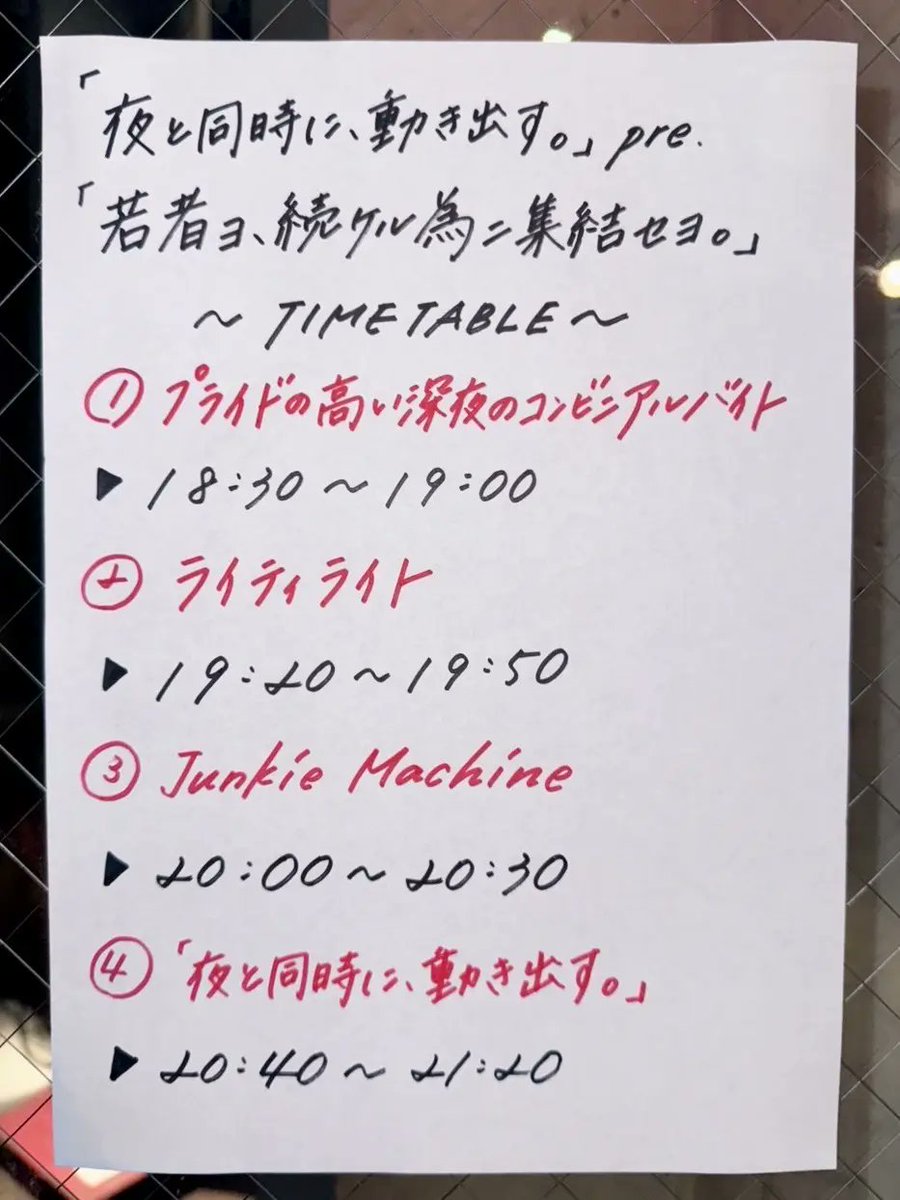 「夜と同時に、動き出す。」pre.
「若者ヨ、続ケル為ニ集結セヨ。」
～ TIMETABLE ～
① プライドの高い深夜のコンビニアルバイト
▶ 18:30 ～ 19:00
② ライティライト
▶ 19:20 ～ 19:50
③ Junkie Machine
▶ 20:00 ～ 20:30
④ 「夜と同時に、動き出す。」
▶ 20:40 ～ 21:20